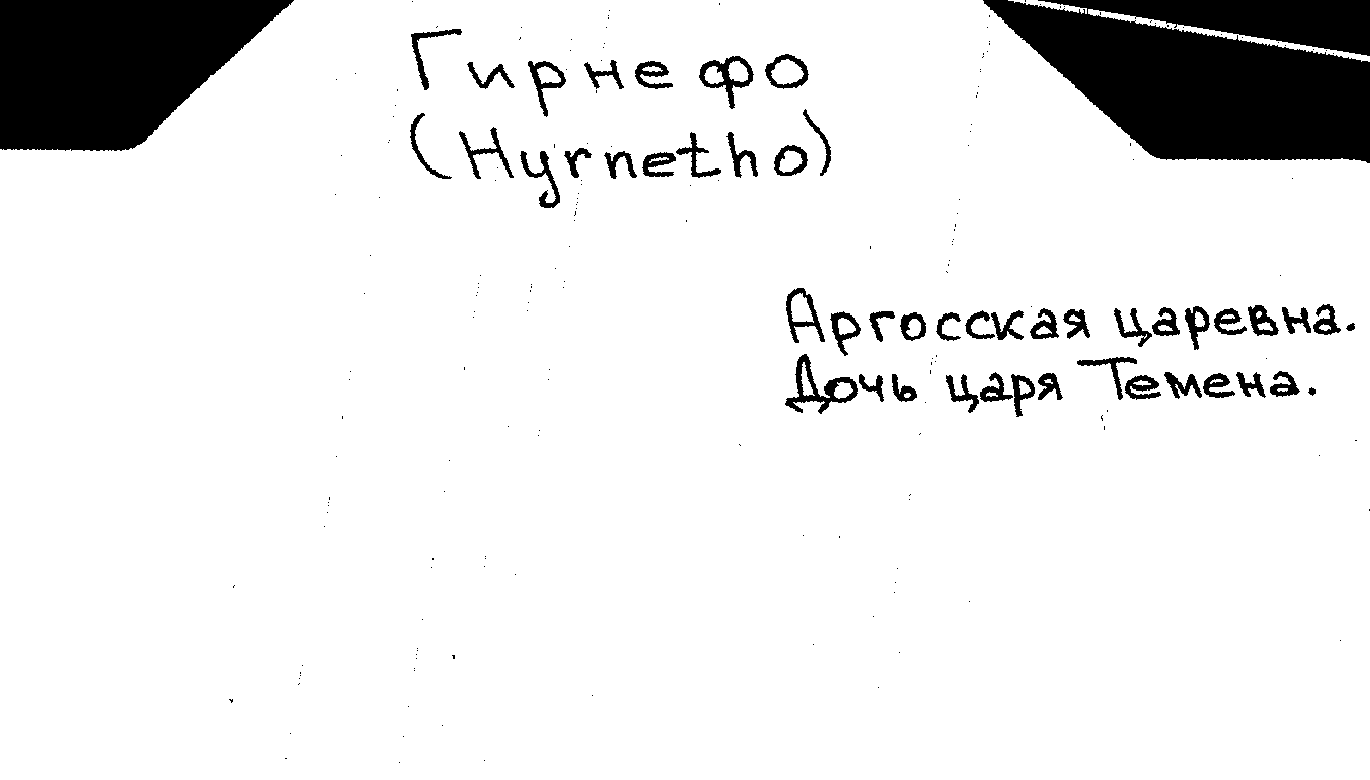 Гирнефо
(Hyrnetho)
Аргосская царевна.
Дочь царя Темена.